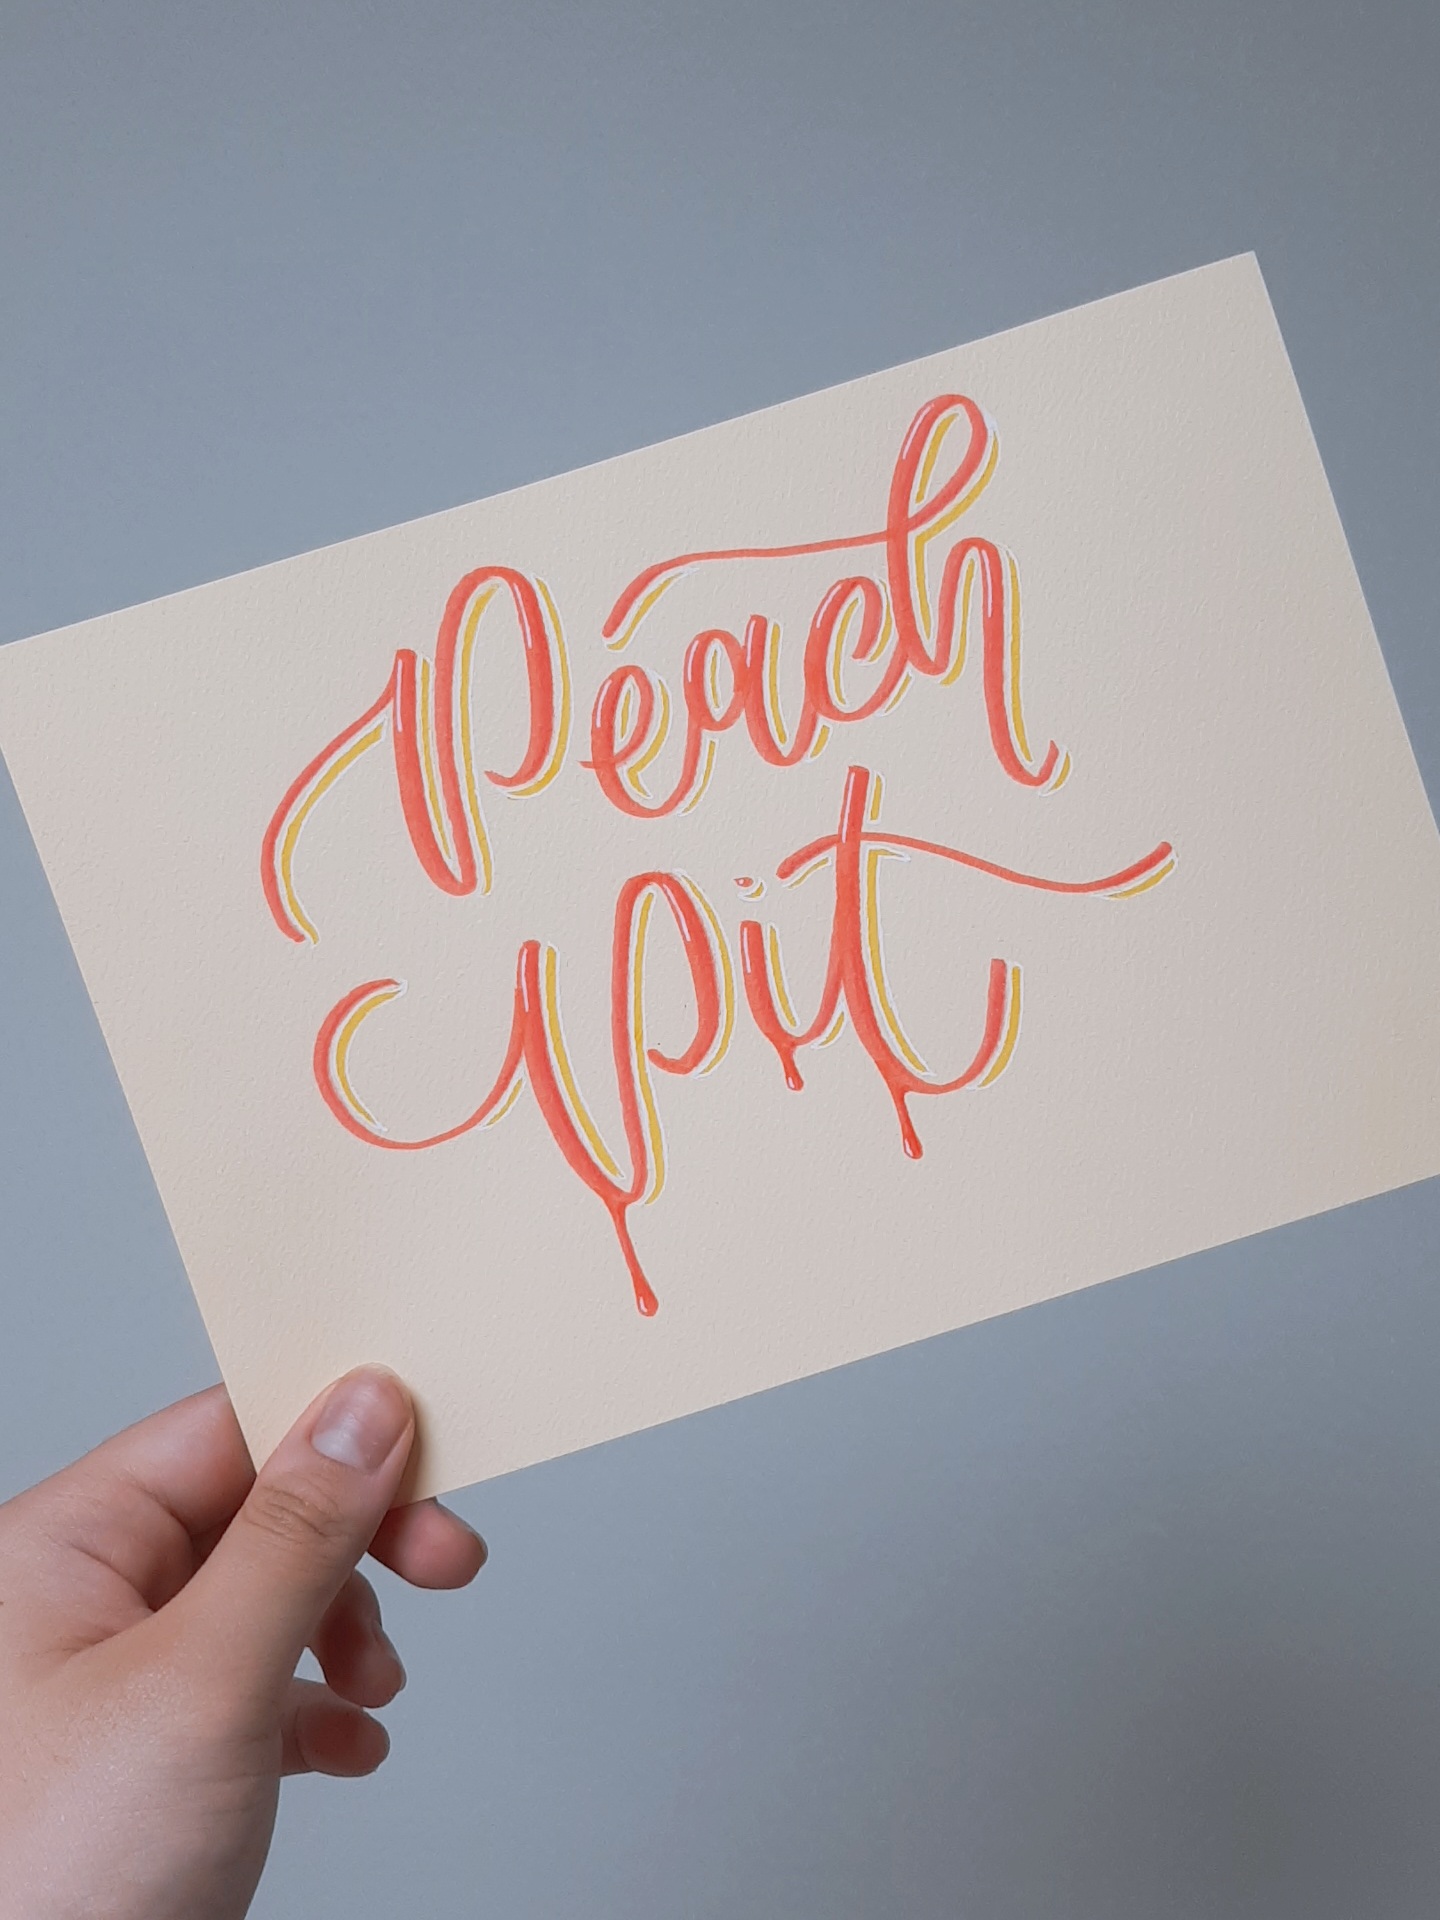 Peach
Pit